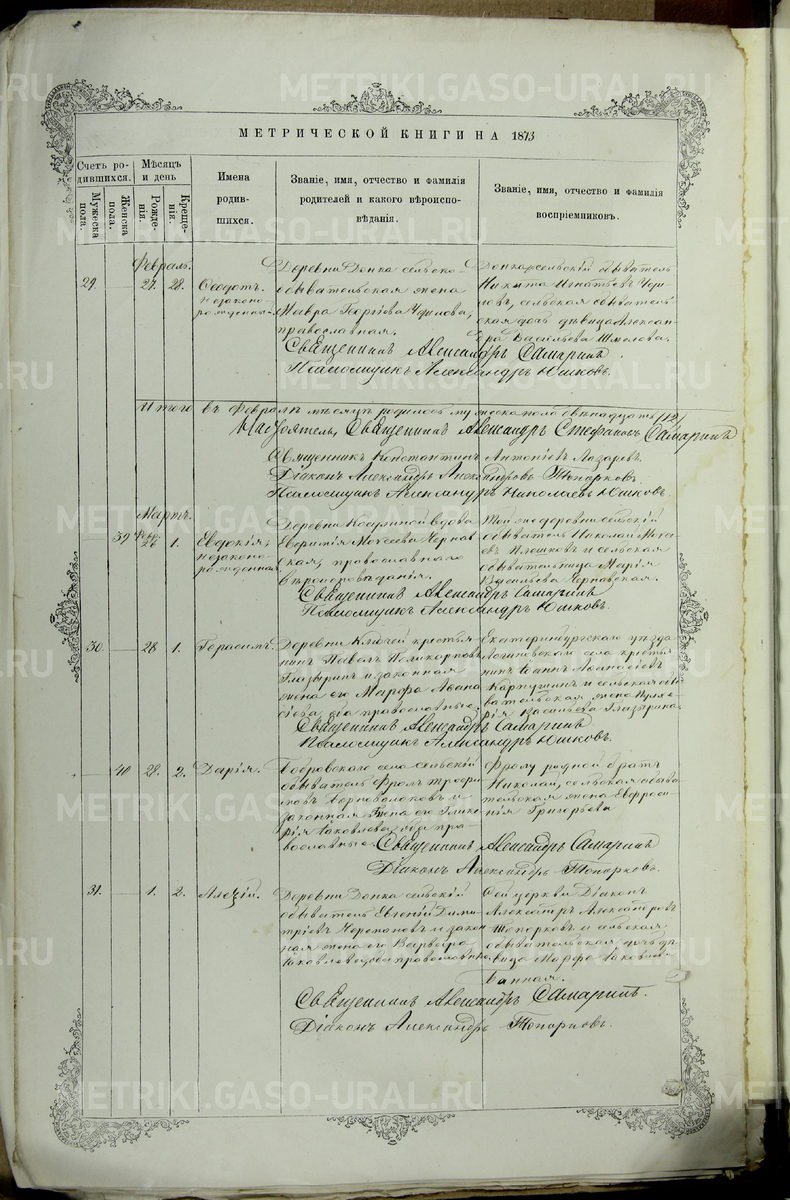 МЕТРИЧЕСКОЙ КНИГИ НА 1873
Счетъ ро-
дившихся.
Мужеска
пола.
Женска
пола.
Мѣсяцъ
и день
Рожде-
нія.
Креще-
нія.
Имена
родив-
шихся.
Званіе, имя, отчество и фамилія
родителей и какого вѣроиспо-
вѣданія.
Званіе, имя, отчество и фамилія
воспріемниковъ.
Февраль.
29. 27. 28. Ѳеодотъ.
незаконно
рожденный
Деревни сельско-
обывательская жена
Мавра Георгіева
православная.
сельскій обыватель
Никита Игнатьевъ
сельская обыватель
ская дочь дѣвица Алексан
дра Васильева
Священникъ Александръ Самаринъ
Псаломщикъ Александръ Юшковъ.
Итого въ Февралѣ мѣсяцѣ родилось мужеска пола двѣнадцать /12/
Настоятель, Священникъ Александръ Стефановъ Самаринъ
Священникъ Константинъ Антоніевъ Лазаревъ.
Діаконъ Александръ Александровъ Топорковъ.
Псаломщикъ Александръ Николаевъ Юшковъ.
Мартъ.
39 Февр. 26 1. Евдокія,
незаконно
рожденная
Деревни вдова
Евфимія Моисеева Чернав
ская, православнаго
вѣроисповѣданія.
Той же деревни сельскій
обыватель Николай
и сельская
обывательница Марія
Васильева Чернавская.
Священникъ Александръ Самаринъ
Псаломщикъ Александръ Юшковъ.
30. 28 1. Герасимъ.
Деревни Ключей крестья
нинъ Павелъ Поликарповъ
Глазыринъ и законная
жена его Марфа Афана
сіева, оба православные.
Екатеринбургскаго уѣзда
Логиновскаго села крестья
нинъ Іоаннъ Аѳанасіевъ
Карпушинъ и сельская обы
вательская жена
Васильева Глазырина.
Священникъ Александръ Самаринъ
Псаломщикъ Александръ Юшковъ.
40 28. 2. Дарія.
Бобровскаго села сельскій
обыватель Фролъ Трофи
мовъ Черноволоковъ и
законная жена его Глике
рія Іаковлева, оба пра-
вославные.
Фролу родной братъ
Николай, сельская обыва
тельская жена Евфроси
нія Григорьева
Священникъ Александръ Самаринъ
Діаконъ Александръ Топорковъ.
31. 1. 2. Алексій.
Деревни сельскій
обыватель Евгеній Дими
тріевъ Черепановъ и закон
ная жена его Варвара
Іаковлева, оба православные.
Сей церкви Діаконъ
Александръ Александровъ
Топорковъ и сельская
обывательская дочь дѣ
вица Марфа Іаковлева
Священникъ Александръ Самаринъ.
Діаконъ Александръ Топорковъ.
METRIKI.GASO-URAL.RU